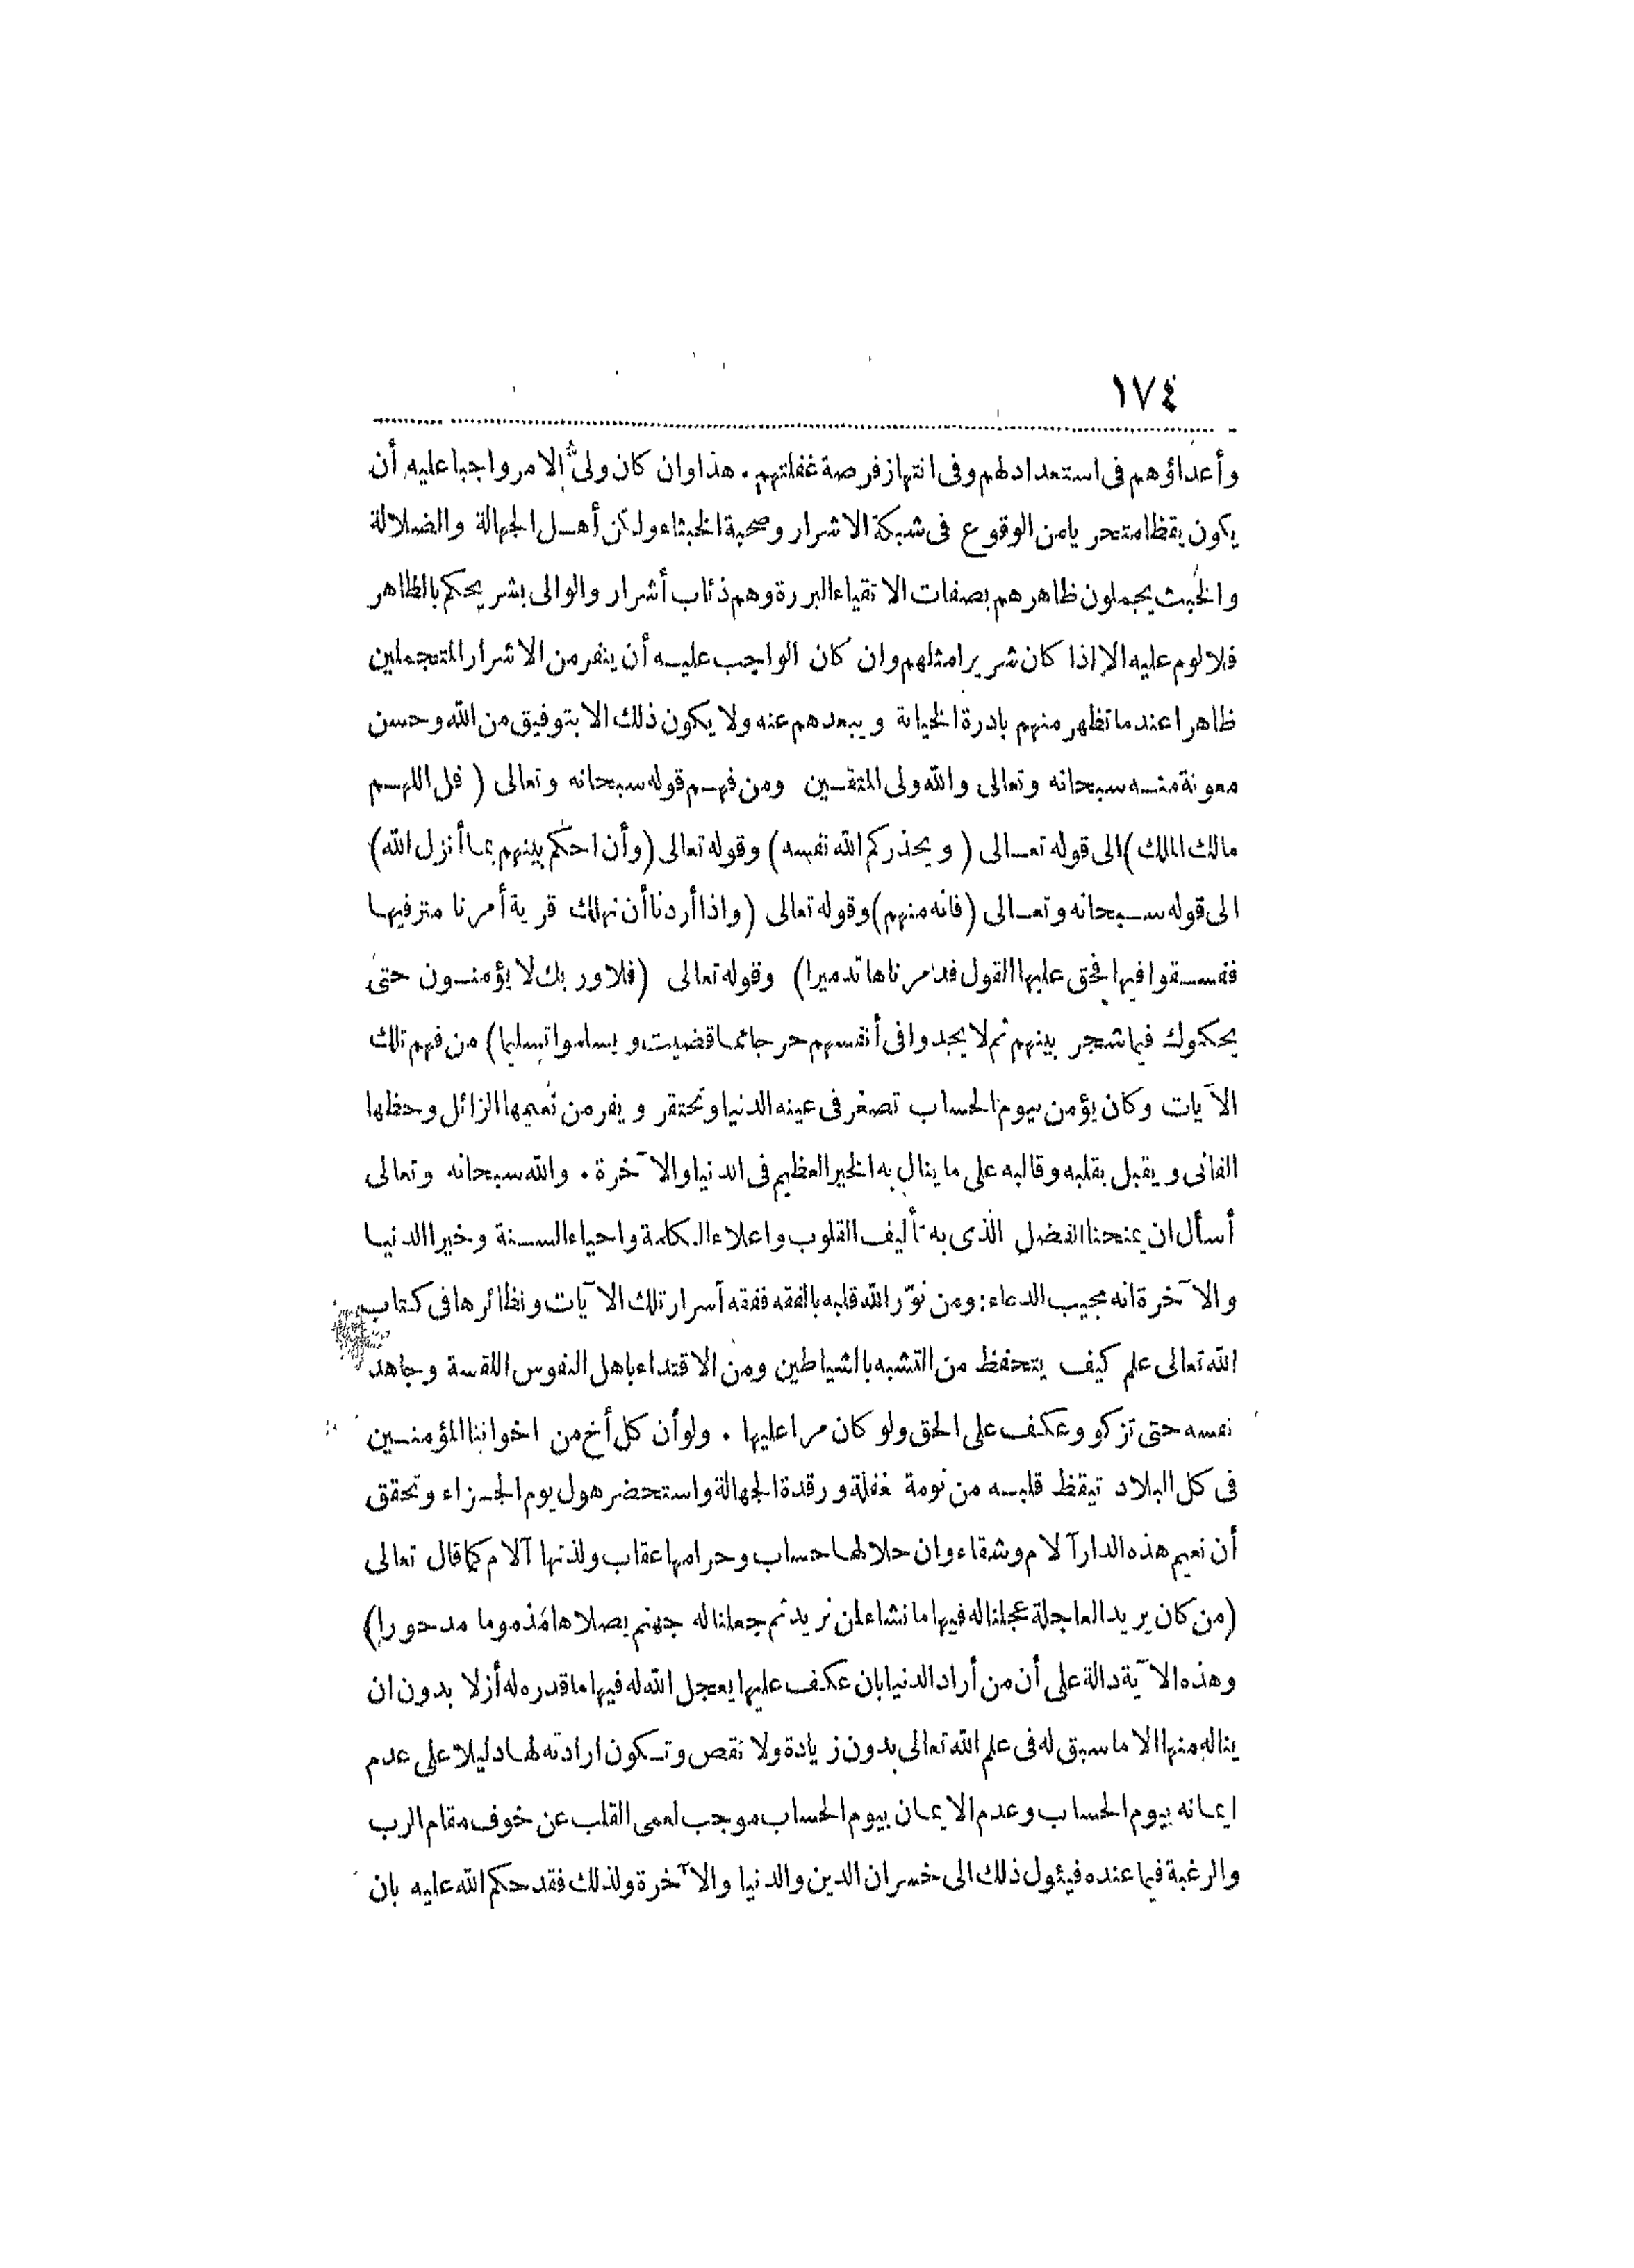 ١٧٤
وأعداؤهم فى استعداد لهم وفى انتهاز فرصة غفلتهم . هذا وان كان ولىُّ الامر واجبا عليه أن
يكون يقظا متحريا من الوقوع فى شبكة الاشرار وصحبة الخبثاء ولكن أهل الجهالة والضلالة
والخبث يجملون ظاهرهم بصفات الاتقياء البررة وهم ذئاب أشرار والوالى بشر يحكم بالظاهر
فلا لوم عليه الا اذا كان شريرا مثلهم وان كان الواجب عليه أن ينفر من الاشرار المتجملين
ظاهرا عندما تظهر منهم بادرة الخيانة ويبعدهم عنه ولا يكون ذلك الا بتوفيق من الله وحسن
معونة منه سبحانه وتعالى والله ولى المتقين ومن فهم قوله سبحانه وتعالى ( قل اللهم
مالك الملك ) الى قوله تعالى ( ويحذركم الله نفسه ) وقوله تعالى (وأن احكم بينهم بما أنزل الله)
الى قوله سبحانه وتعالى (فانه منهم) وقوله تعالى (واذا أردنا أن نهلك قرية أمرنا مترفيها
ففسقوا فيها فحق عليها القول فدمرناها تدميرا) وقوله تعالى (فلا وربك لا يؤمنون حتى
يحكموك فيما شجر بينهم ثم لا يجدوا فى أنفسهم حرجا مما قضيت ويسلموا تسليما) من فهم تلك
الآيات وكان يؤمن بيوم الحساب تصغر فى عينه الدنيا وتحتقر ويفر من نعيمها الزائل وحظها
الفانى ويقبل بقلبه وقالبه على ما ينال به الخير العظيم فى الدنيا والآخرة . والله سبحانه وتعالى
أسأل ان يمنحنا الفضل الذى به تأليف القلوب واعلاء الكلمة واحياء السنة وخيرا الدنيا
والآخرة انه مجيب الدعاء: ومن نوّر الله قلبه بالفقه ففقه أسرار تلك الآيات ونظائرها فى كتاب
الله تعالى علم كيف يتحفظ من التشبه بالشياطين ومن الاقتداء باهل النفوس اللقسة وجاهد
نفسه حتى تزكو وعكف على الحق ولو كان مرا عليها . ولو أن كل أخ من اخواننا المؤمنين
فى كل البلاد تيقظ قلبه من نومة غفلة ورقدة الجهالة واستحضر هول يوم الجزاء وتحقق
أن نعيم هذه الدار آلام وشقاء وان حلالها حساب وحرامها عقاب ولذتها آلام كما قال تعالى
(من كان يريد العاجلة عجلنا له فيها ما نشاء لمن نريد ثم جعلنا له جهنم يصلاها مذموما مدحورا)
وهذه الآية دالة على أن من أراد الدنيا بان عكف عليها يعجل الله له فيها ما قدره له أزلا بدون ان
يناله منها الا ما سبق له فى علم الله تعالى بدون زيادة ولا نقص وتكون ارادته لها دليلا على عدم
ايمانه بيوم الحساب وعدم الايمان بيوم الحساب موجب لعمى القلب عن خوف مقام الرب
والرغبة فيما عنده فيئول ذلك الى خسران الدين والدنيا والآخرة ولذلك فقد حكم الله عليه بان